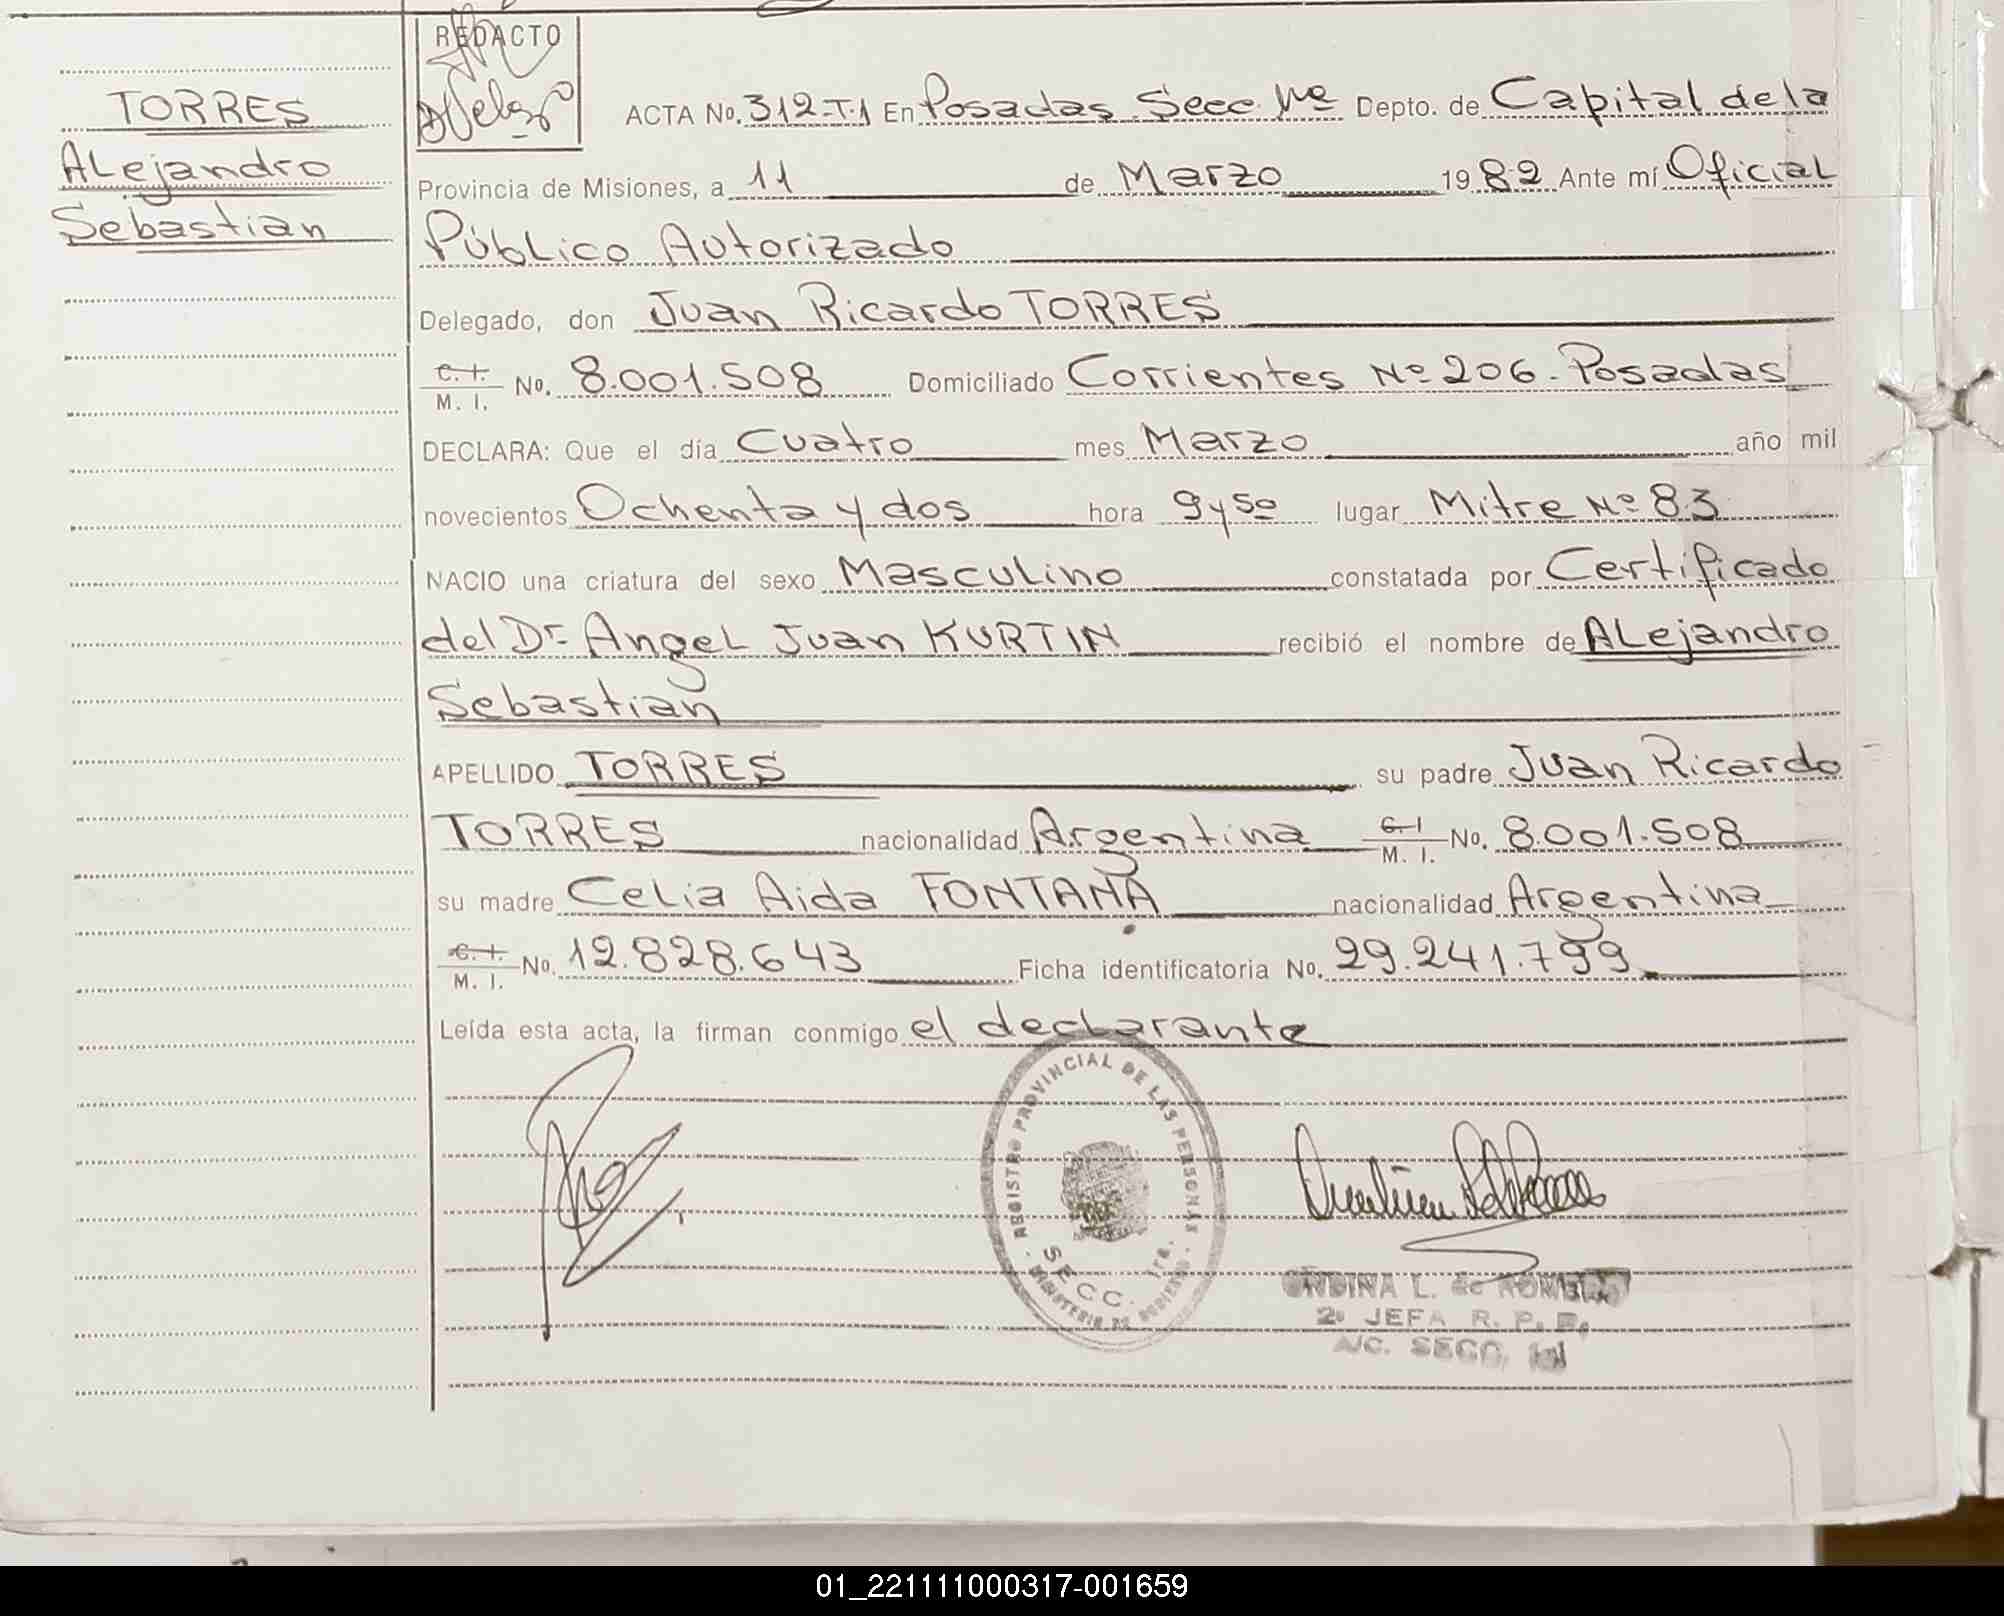 REDACTO
TORRES
Alejandro
Sebastian
ACTA No. 312-T.1 En Posadas Secc. 1ra Depto. de Capital de la
Provincia de Misiones, a 11 de Marzo 1982 Ante mí Oficial
Público Autorizado
Delegado, don Juan Ricardo TORRES
C. I. M. I. No. 8.001.508 Domiciliado Corrientes Nº 206 - Posadas
DECLARA: Que el día Cuatro mes Marzo año mil
novecientos Ochenta y dos hora 9 y 50 lugar Mitre Nº 83
NACIO una criatura del sexo Masculino constatada por Certificado
del Dr. Angel Juan KURTIN recibió el nombre de Alejandro
Sebastian
APELLIDO TORRES su padre Juan Ricardo
TORRES nacionalidad Argentina C. I M. I. No. 8.001.508
su madre Celia Aida FONTANA nacionalidad Argentina
C. I. M. I. No. 12.828.643 Ficha identificatoria No. 29.241.799
Leída esta acta, la firman conmigo el declarante
REGISTRO PROVINCIAL DE LAS PERSONAS
SECC. 1ra.
MINISTERIO DE GOBIERNO
ONDINA L. de
2º JEFA R. P. P.
A/C. SECC.
01_221111000317-001659